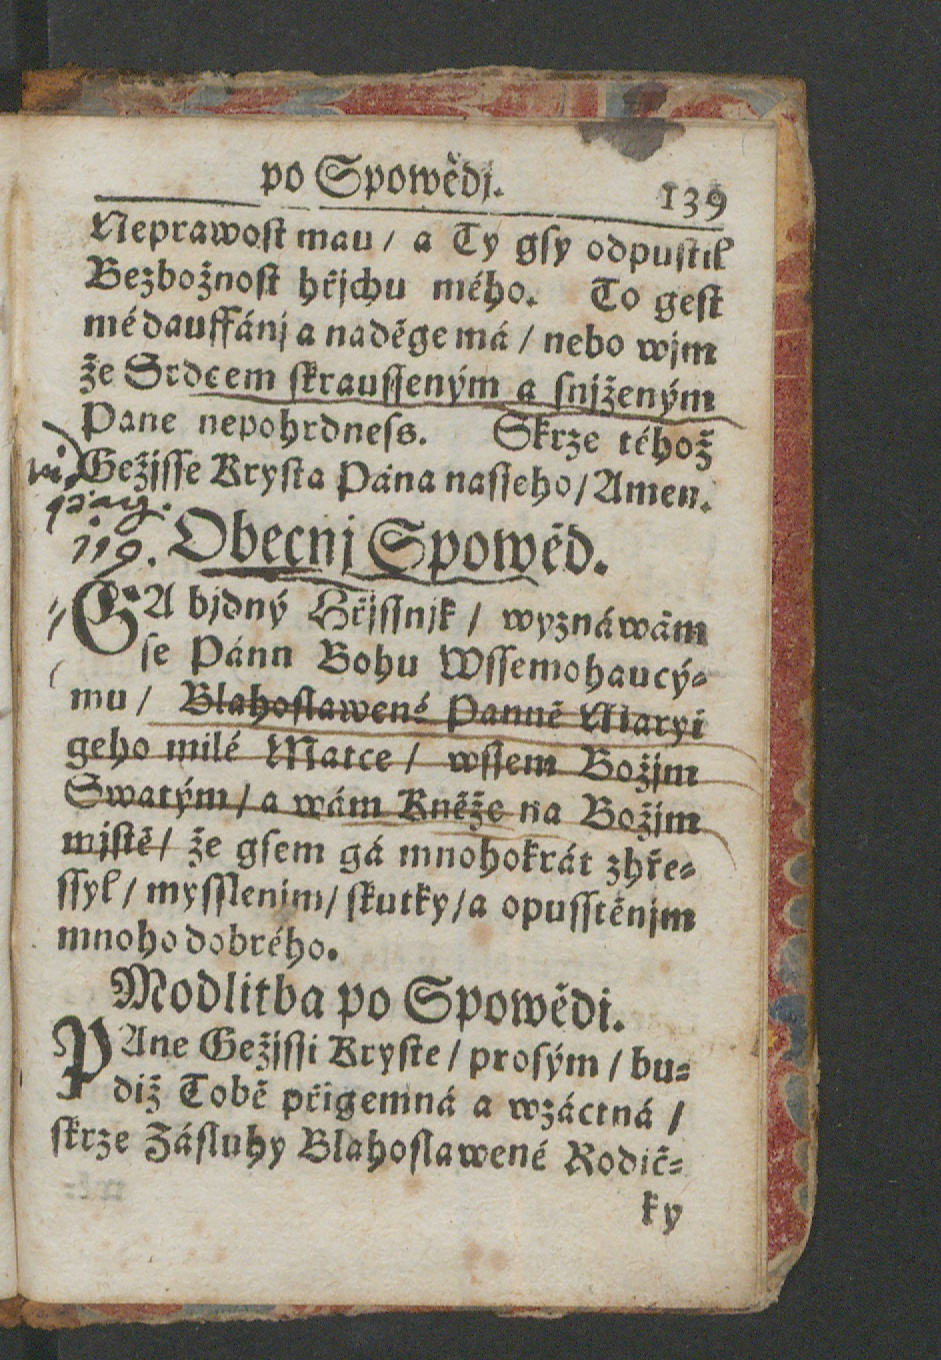 po Spowědj.
139
Neprawost mau / a Ty gsy odpustil
Bezbožnost hřjchu mého. To gest
mé dauffánj a naděge má / nebo wjm
že Srdcem skrausseným a snjženým
Pane nepohrdness. Skrze téhož
Gežjsse Krysta Pána nasseho / Amen.
pag.
119.
Obecnj Spowěd.
GA bjdný Hřjssnjk / wyznáwám
se Pánu Bohu Wssemohaucý-
mu / Blahoslawené Panně Maryi
geho milé Matce / wssem Božjm
Swatým / a wám Kněže na Božjm
mjstě / že gsem gá mnohokrát zhře-
ssyl / mysslenjm / skutky / a opusstěnjm
mnoho dobrého.
Modlitba po Spowědi.
PAne Gežjssi Kryste / prosým / bu-
diž Tobě přigemná a wzáctná /
skrze Zásluhy Blahoslawené Rodič-
ky